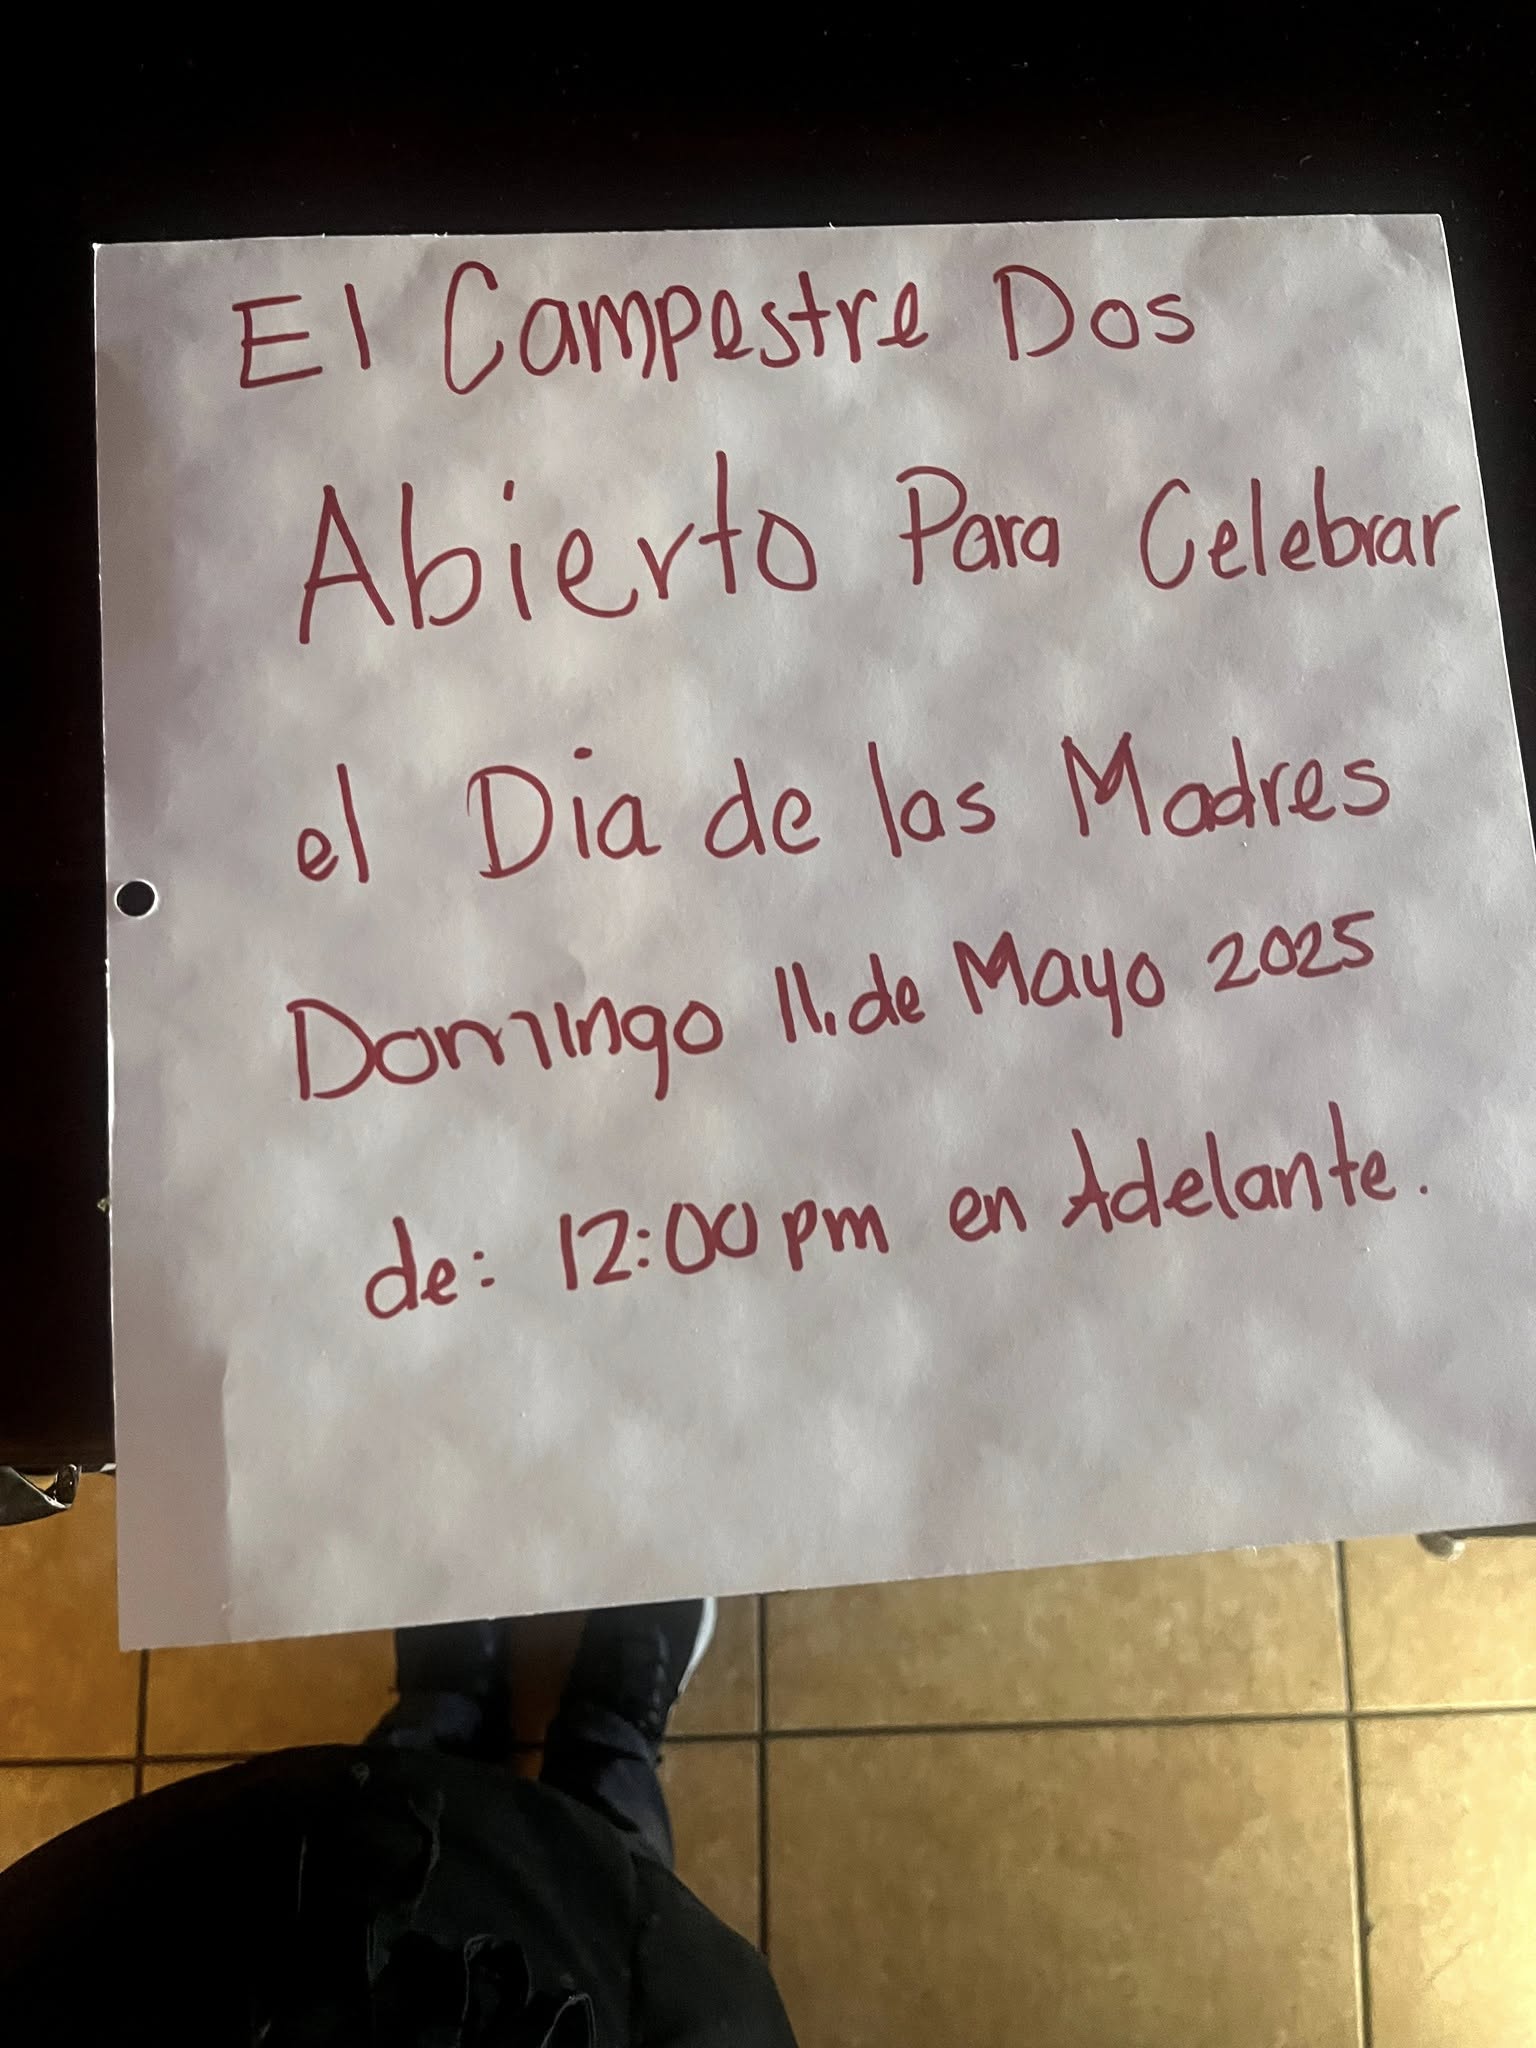 El Campestre Dos
Abierto Para Celebrar
el Dia de las Madres
Domingo 11. de Mayo 2025
de: 12:00 pm en Adelante.